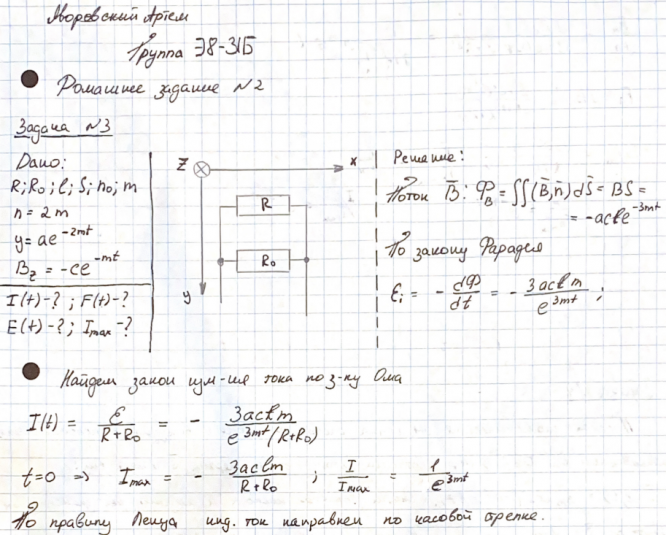 Моровский Артем
Группа Э8-31Б
Домашнее задание №2
Задача №3
Дано:
R; R₀; l; S; n₀; m
n = 2m
y = ae^{-2mt}
B_z = -ce^{-mt}
I(t)-? ; F(t)-?
E(t)-? ; I_max-?
Z x
R
R₀
y
Решение:
Поток B̄: Φ_B = ∬(B̄, n̄)dS̄ = BS =
= -acle^{-3mt}
По закону Фарадея
ℰi = - dΦ/dt = - 3aclm/e^{3mt} ;
Найдем закон изм-ия тока по з-ну Ома
I(t) = ℰ/(R+R₀) = - 3aclm/(e^{3mt}(R+R₀))
t=0 => I_max = - 3aclm/(R+R₀) ; I/I_max = 1/e^{3mt}
По правилу Ленца инд. ток направлен по часовой стрелке.